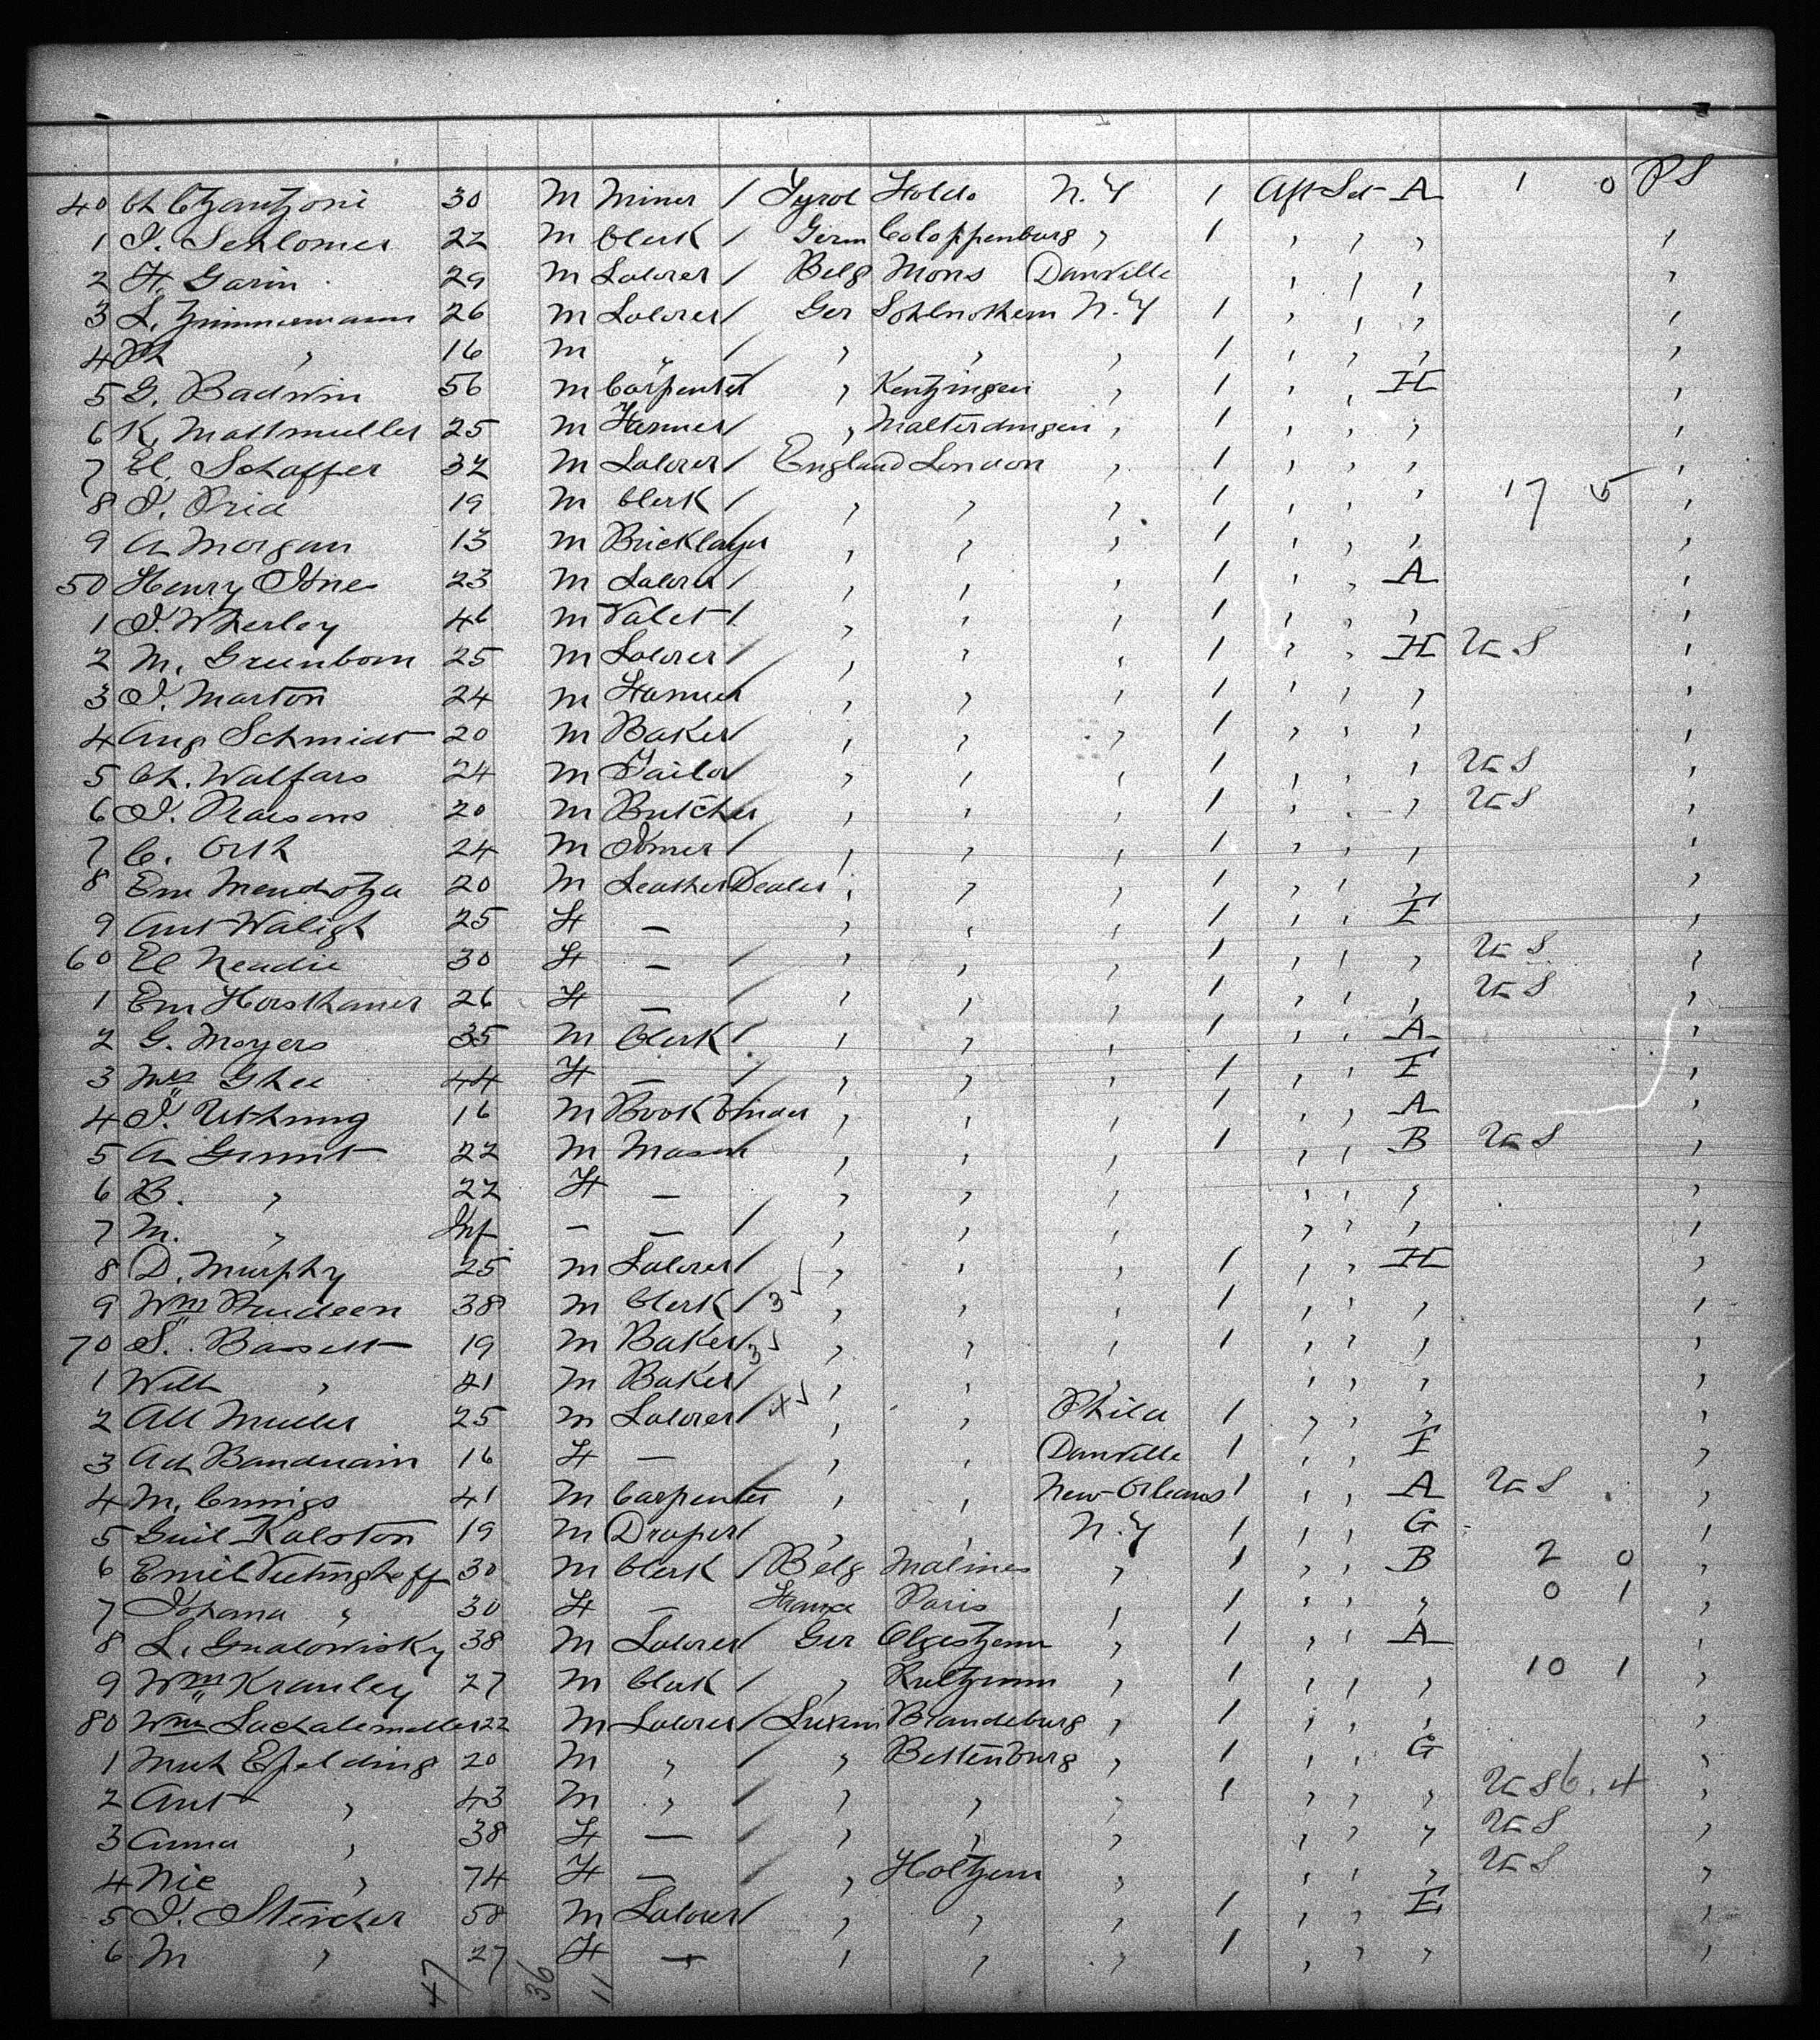 40 Ch Czantzoni 30 M Miner / Tyrol Holdo N.Y 1 Aft Sd A 1 0 PS
1 J. Schlomer 22 M Clerk / Germ Coloppenburg , 1 , , , ,
2 H. Garin 29 M Laborer / Belg Mons Danville , , , ,
3 L. Zimmermann 26 M Laborer / Ger N.Y 1 , , , ,
4 Ph , 16 M " / , , , 1 , , , ,
5 G. Badwin 56 M Carpenter , Kentzingen , 1 , , H ,
6 K. Mallmuller 25 M Farmer / , Malterdingen , 1 , , , ,
7 El. Schaffer 32 M Laborer / England London , 1 , , , ,
8 J. Prid 19 M Clerk / , , , 1 , , , 17 5 ,
9 A Morgan 13 M Bricklayer , , , 1 , , , ,
50 Henry Jones 23 M Laborer / , , , 1 , , A ,
1 J. Wherley 46 M Valet / , , , 1 , , , ,
2 M. Grunbom 25 M Laborer / , , , 1 , , H US ,
3 J. Marton 24 M Farmer , , , 1 , , , ,
4 Aug Schmidt 20 M Baker / , , , 1 , , , ,
5 Ch. Walfars 24 M Tailor / , , , 1 , , , US ,
6 J. Pearsons 20 M Butcher , , , 1 , , , US ,
7 C. Orth 24 M Joiner / , , , 1 , , , ,
8 Em Mendotza 20 M Leather Dealer , , , 1 , , , ,
9 Ant Waligh 25 F — , , , 1 , , E ,
60 El Neadie 30 F — / , , , 1 , , , US ,
1 Em Horsthauer 26 F — / , , , 1 , , , US ,
2 G. Moyers 35 M Clerk / , , , 1 , , A ,
3 Mrs Ghee 44 F — / , , , 1 , , E ,
4 J. 16 M Book binder , , , 1 , , A ,
5 A 22 M Mason , , , 1 , , B US ,
6 B. , 22 F — , , , , , , ,
7 M. , Inf — — / , , , , , , ,
8 D. Murphy 25 M Laborer / , , , 1 , , H ,
9 Wm 38 M Clerk / 3 , , , 1 , , , ,
70 S. Bassett 19 M Baker / 3 , , , 1 , , , ,
1 Will , 21 M Baker / , , , , , , ,
2 Alb Muller 25 M Laborer / x , , Phila 1 , , , ,
3 Ad Banduain 16 F — , , Danville 1 , , E ,
4 M. 41 M Carpenter , , New Orleans 1 , , A US ,
5 Guil Kolston 19 M Draper / , , N.Y 1 , , G ,
6 Emil Vietinghoff 30 M Clerk / Belg Malines , 1 , , B 2 0 ,
7 Johana , 30 F — France Paris , 1 , , , 0 1 ,
8 L. Gnadowisky 38 M Laborer / Ger , 1 , , A ,
9 Wm Kranley 27 M Clerk / , , 1 , , , 10 1 ,
80 Wm 22 M Laborer / Luxem Brandeburg , 1 , , , ,
1 Efelding 20 M , / , Bettenburg , 1 , , G ,
2 Ant , 43 M , / , , , 1 , , , US 6. 4 ,
3 Anna , 38 F — / , , , , , , US ,
4 Nic , 74 F — / , Holtzem , , , , US ,
5 J. Steicher 58 M Laborer / , , , 1 , , E ,
6 M , 27 F — , , , 1 , , , ,
47 36 11